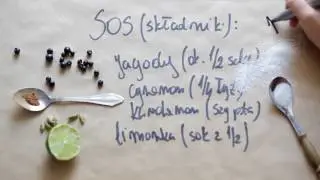 SOS (składniki):
jagody (ok. 1/2 szkl.)
cynamon (1/4 łyż.)
kardamon (szypta)
limonka (sok z 1/2)